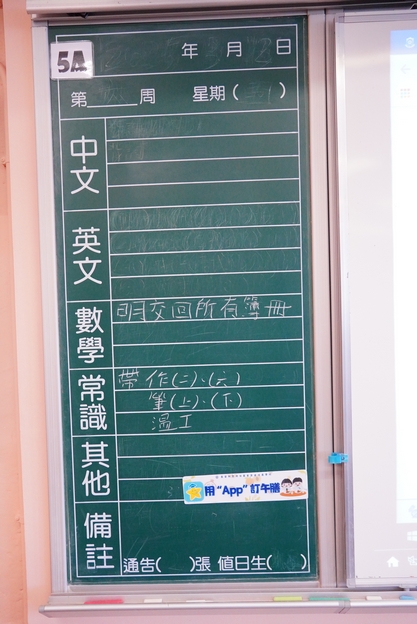 5A
年 月 日
第 周 星期( )
中文
英文
數學
明交回所有簿冊
常識
帶 作(二)、(六)
筆(上)、(下)
溫工
其他
用 “App” 訂午膳
備註
通告( )張 值日生( )